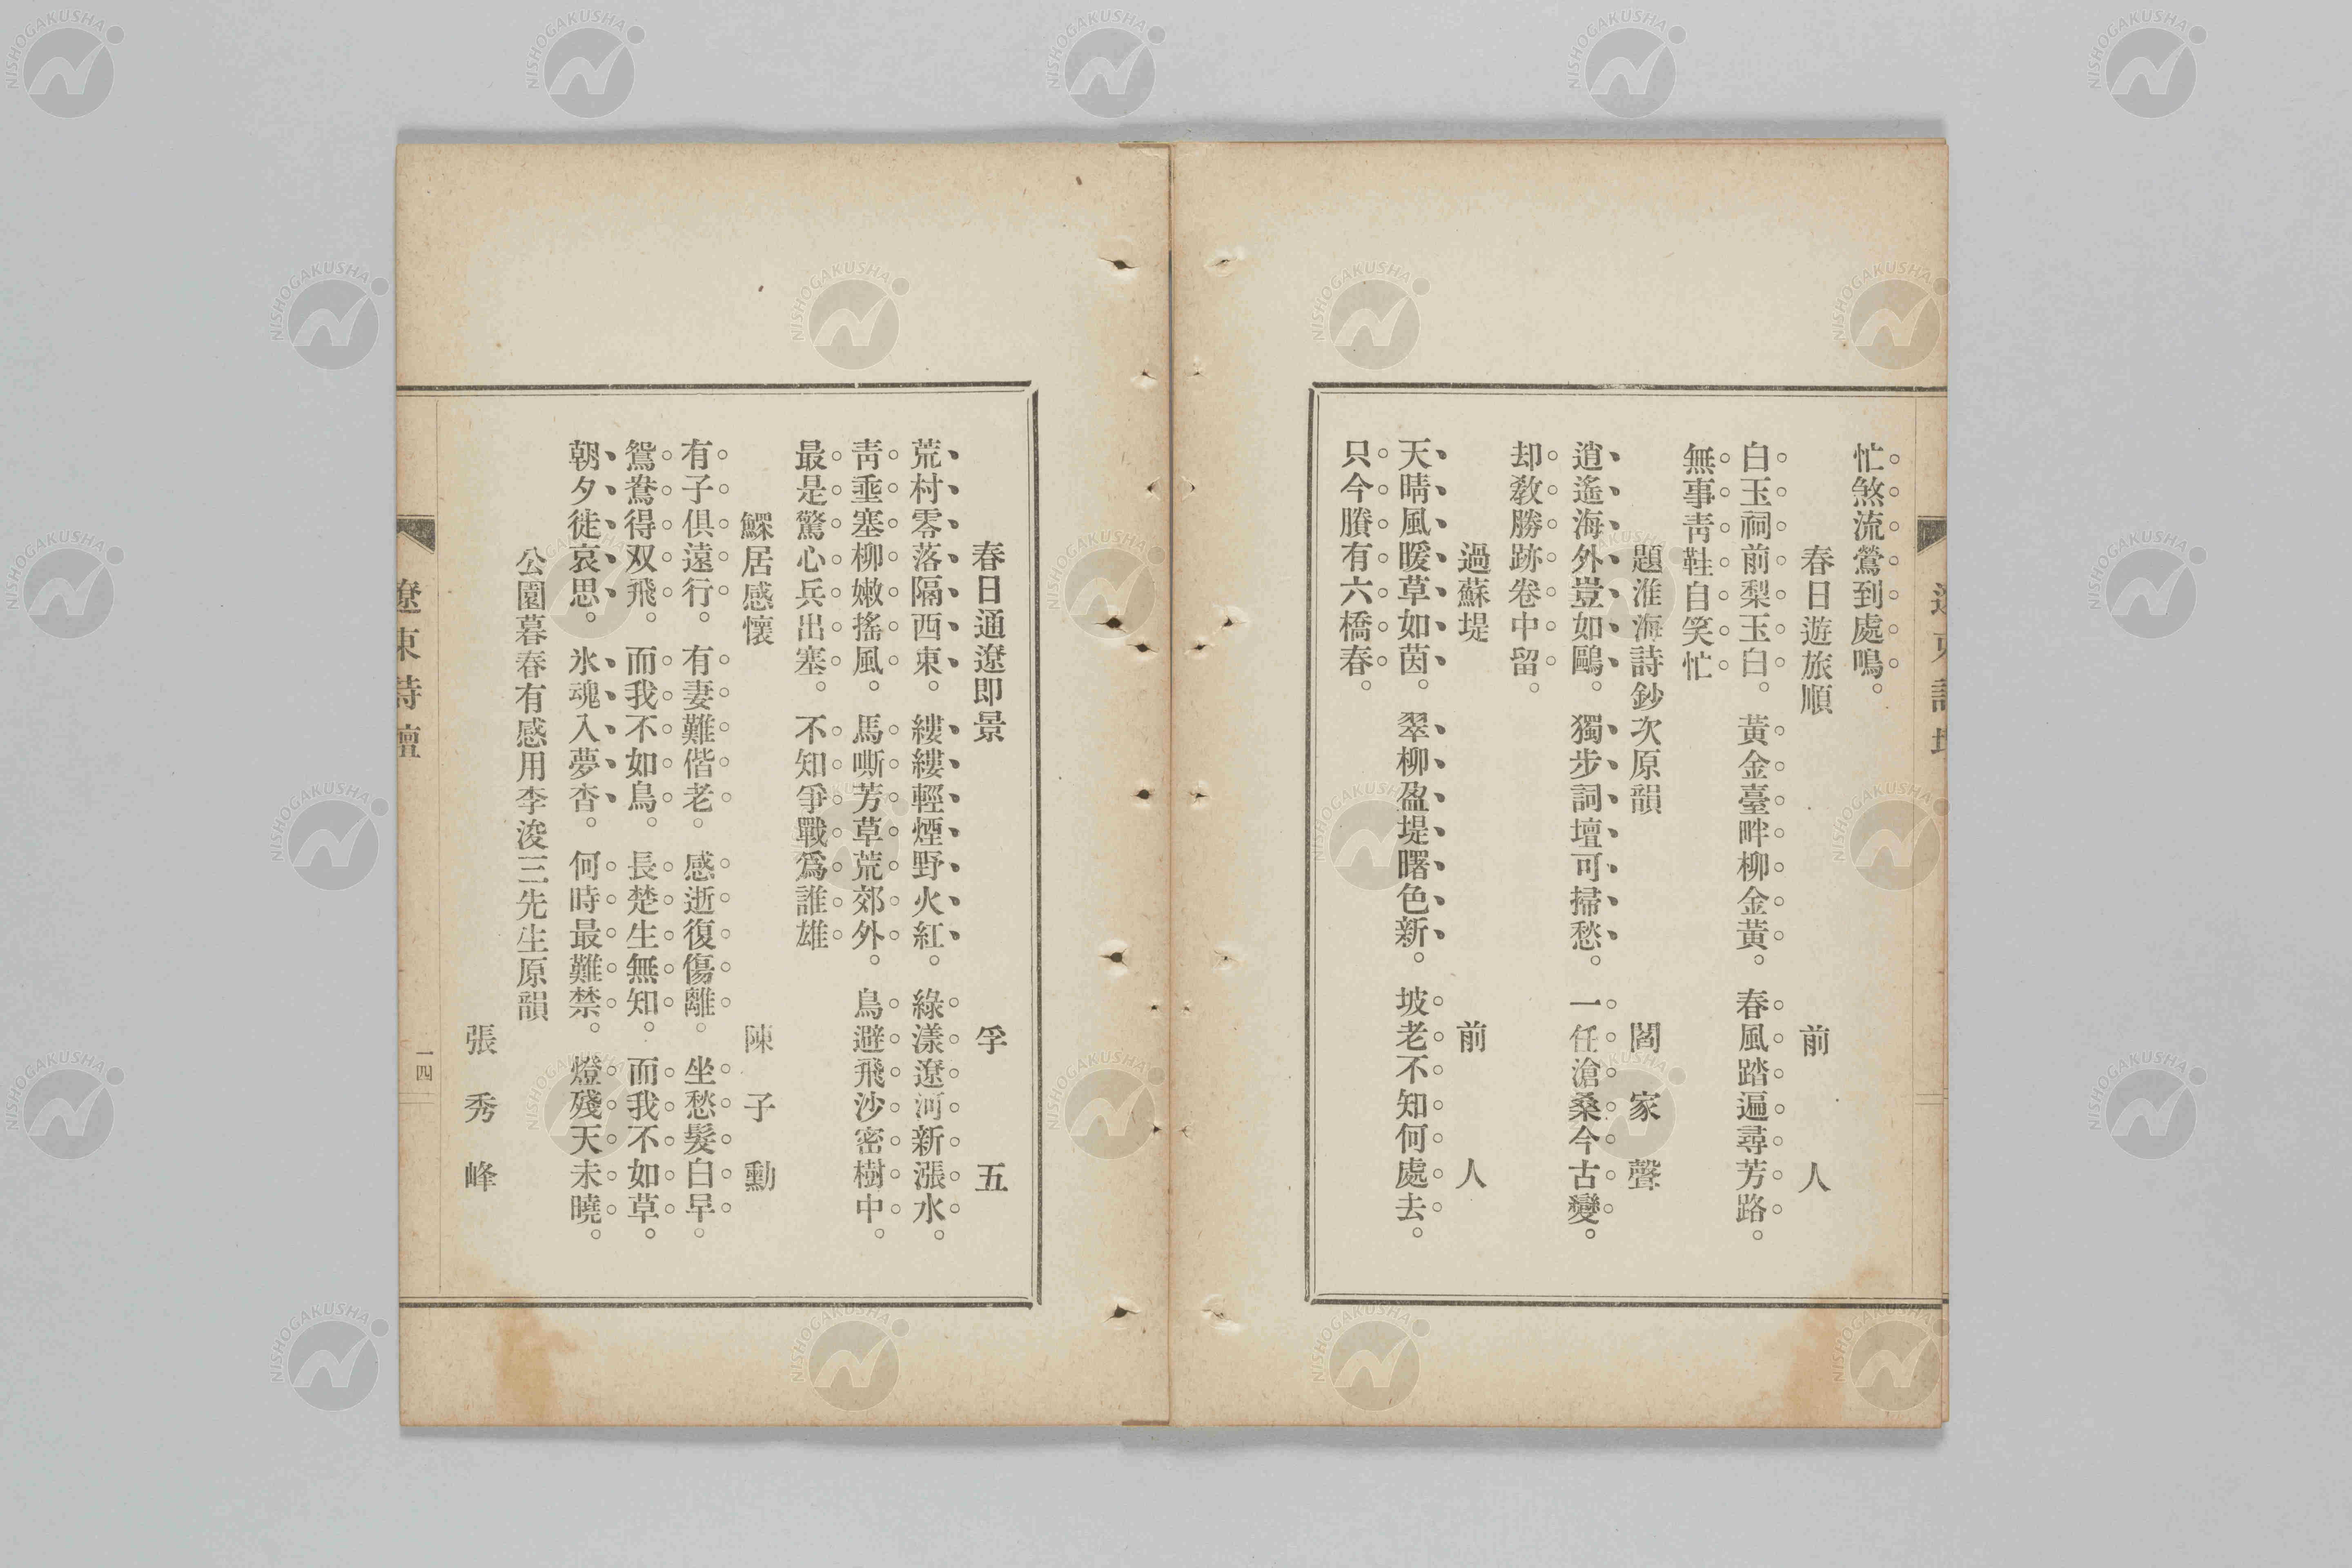 忙煞流鶯到處鳴。
春日遊旅順　前人
白玉祠前梨玉白。黃金臺畔柳金黃。春風踏遍尋芳路。
無事靑鞋自笑忙
題淮海詩鈔次原韻　閻家聲
逍遙海外豈如鷗。獨步詞壇可掃愁。一任滄桑今古變。
却敎勝跡卷中留。
過蘇堤　前人
天晴風暖草如茵。翠柳盈堤曙色新。坡老不知何處去。
只今賸有六橋春。
春日通遼即景　孚五
荒村零落隔西東。縷縷輕煙野火紅。綠漾遼河新漲水。
靑垂塞柳嫩搖風。馬嘶芳草荒郊外。鳥避飛沙密樹中。
最是驚心兵出塞。不知爭戰爲誰雄
鰥居感懷　陳子勳
有子俱遠行。有妻難偕老。感逝復傷離。坐愁髮白早。
鴛鴦得双飛。而我不如鳥。長楚生無知。而我不如草。
朝夕徒哀思。氷魂入夢杳。何時最難禁。燈殘天未曉。
公園暮春有感用李浚三先生原韻
張秀峰
遼東詩壇
一四
NISHOGAKUSHA